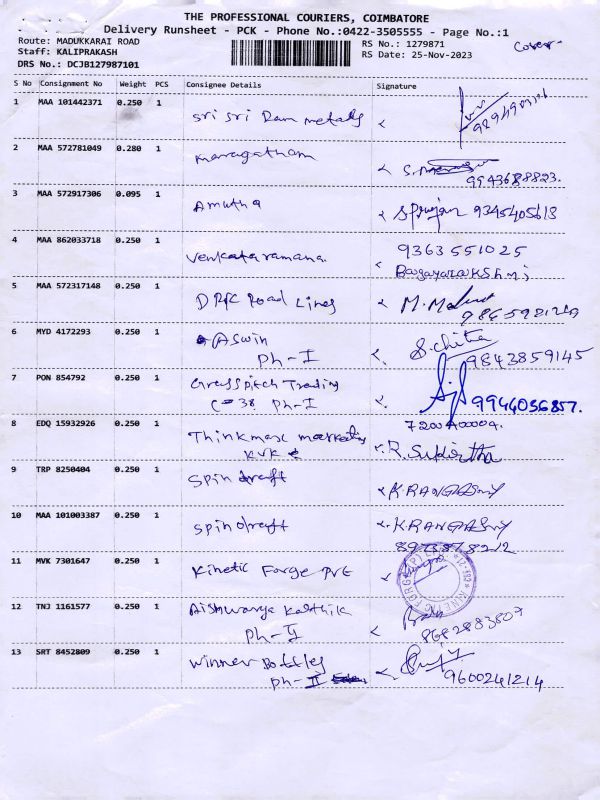 THE PROFESSIONAL COURIERS, COIMBATORE
Delivery Runsheet - PCK - Phone No.:0422-3505555 - Page No.:1
Route: MADUKKARAI ROAD
RS No.: 1279871
Cover-
Staff: KALIPRAKASH
RS Date: 25-Nov-2023
DRS No.: DCJB127987101
S No Consignment No Weight PCS Consignee Details Signature
1 MAA 101442371 0.250 1 Sri Sri Ram metals
2 MAA 572781049 0.280 1 maragatham
9943688823.
3 MAA 572917306 0.095 1 Amutha 9345405613
4 MAA 862033718 0.250 1 Venkataramana 9363551025
5 MAA 572317148 0.250 1 DRFC Road Lines M.
6 MYD 4172293 0.250 1 Aswin S.chitra
Ph-I 9843859145
7 PON 854792 0.250 1 Trading
C-38 Ph-I 9944036857.
8 EDQ 15932926 0.250 1 Thinkmax marketing
KVK R.
9 TRP 8250404 0.250 1 Spin draft K.RANGASMY
10 MAA 101003387 0.250 1 Spin draft K.RANGASMY
11 MVK 7301647 0.250 1 Kinetic Forge Pvt
12 TNJ 1161577 0.250 1 Aishwarya Karthik
Ph-II 8682883807
13 SRT 8452809 0.250 1 Winner Bottles
Ph-II 9600241214